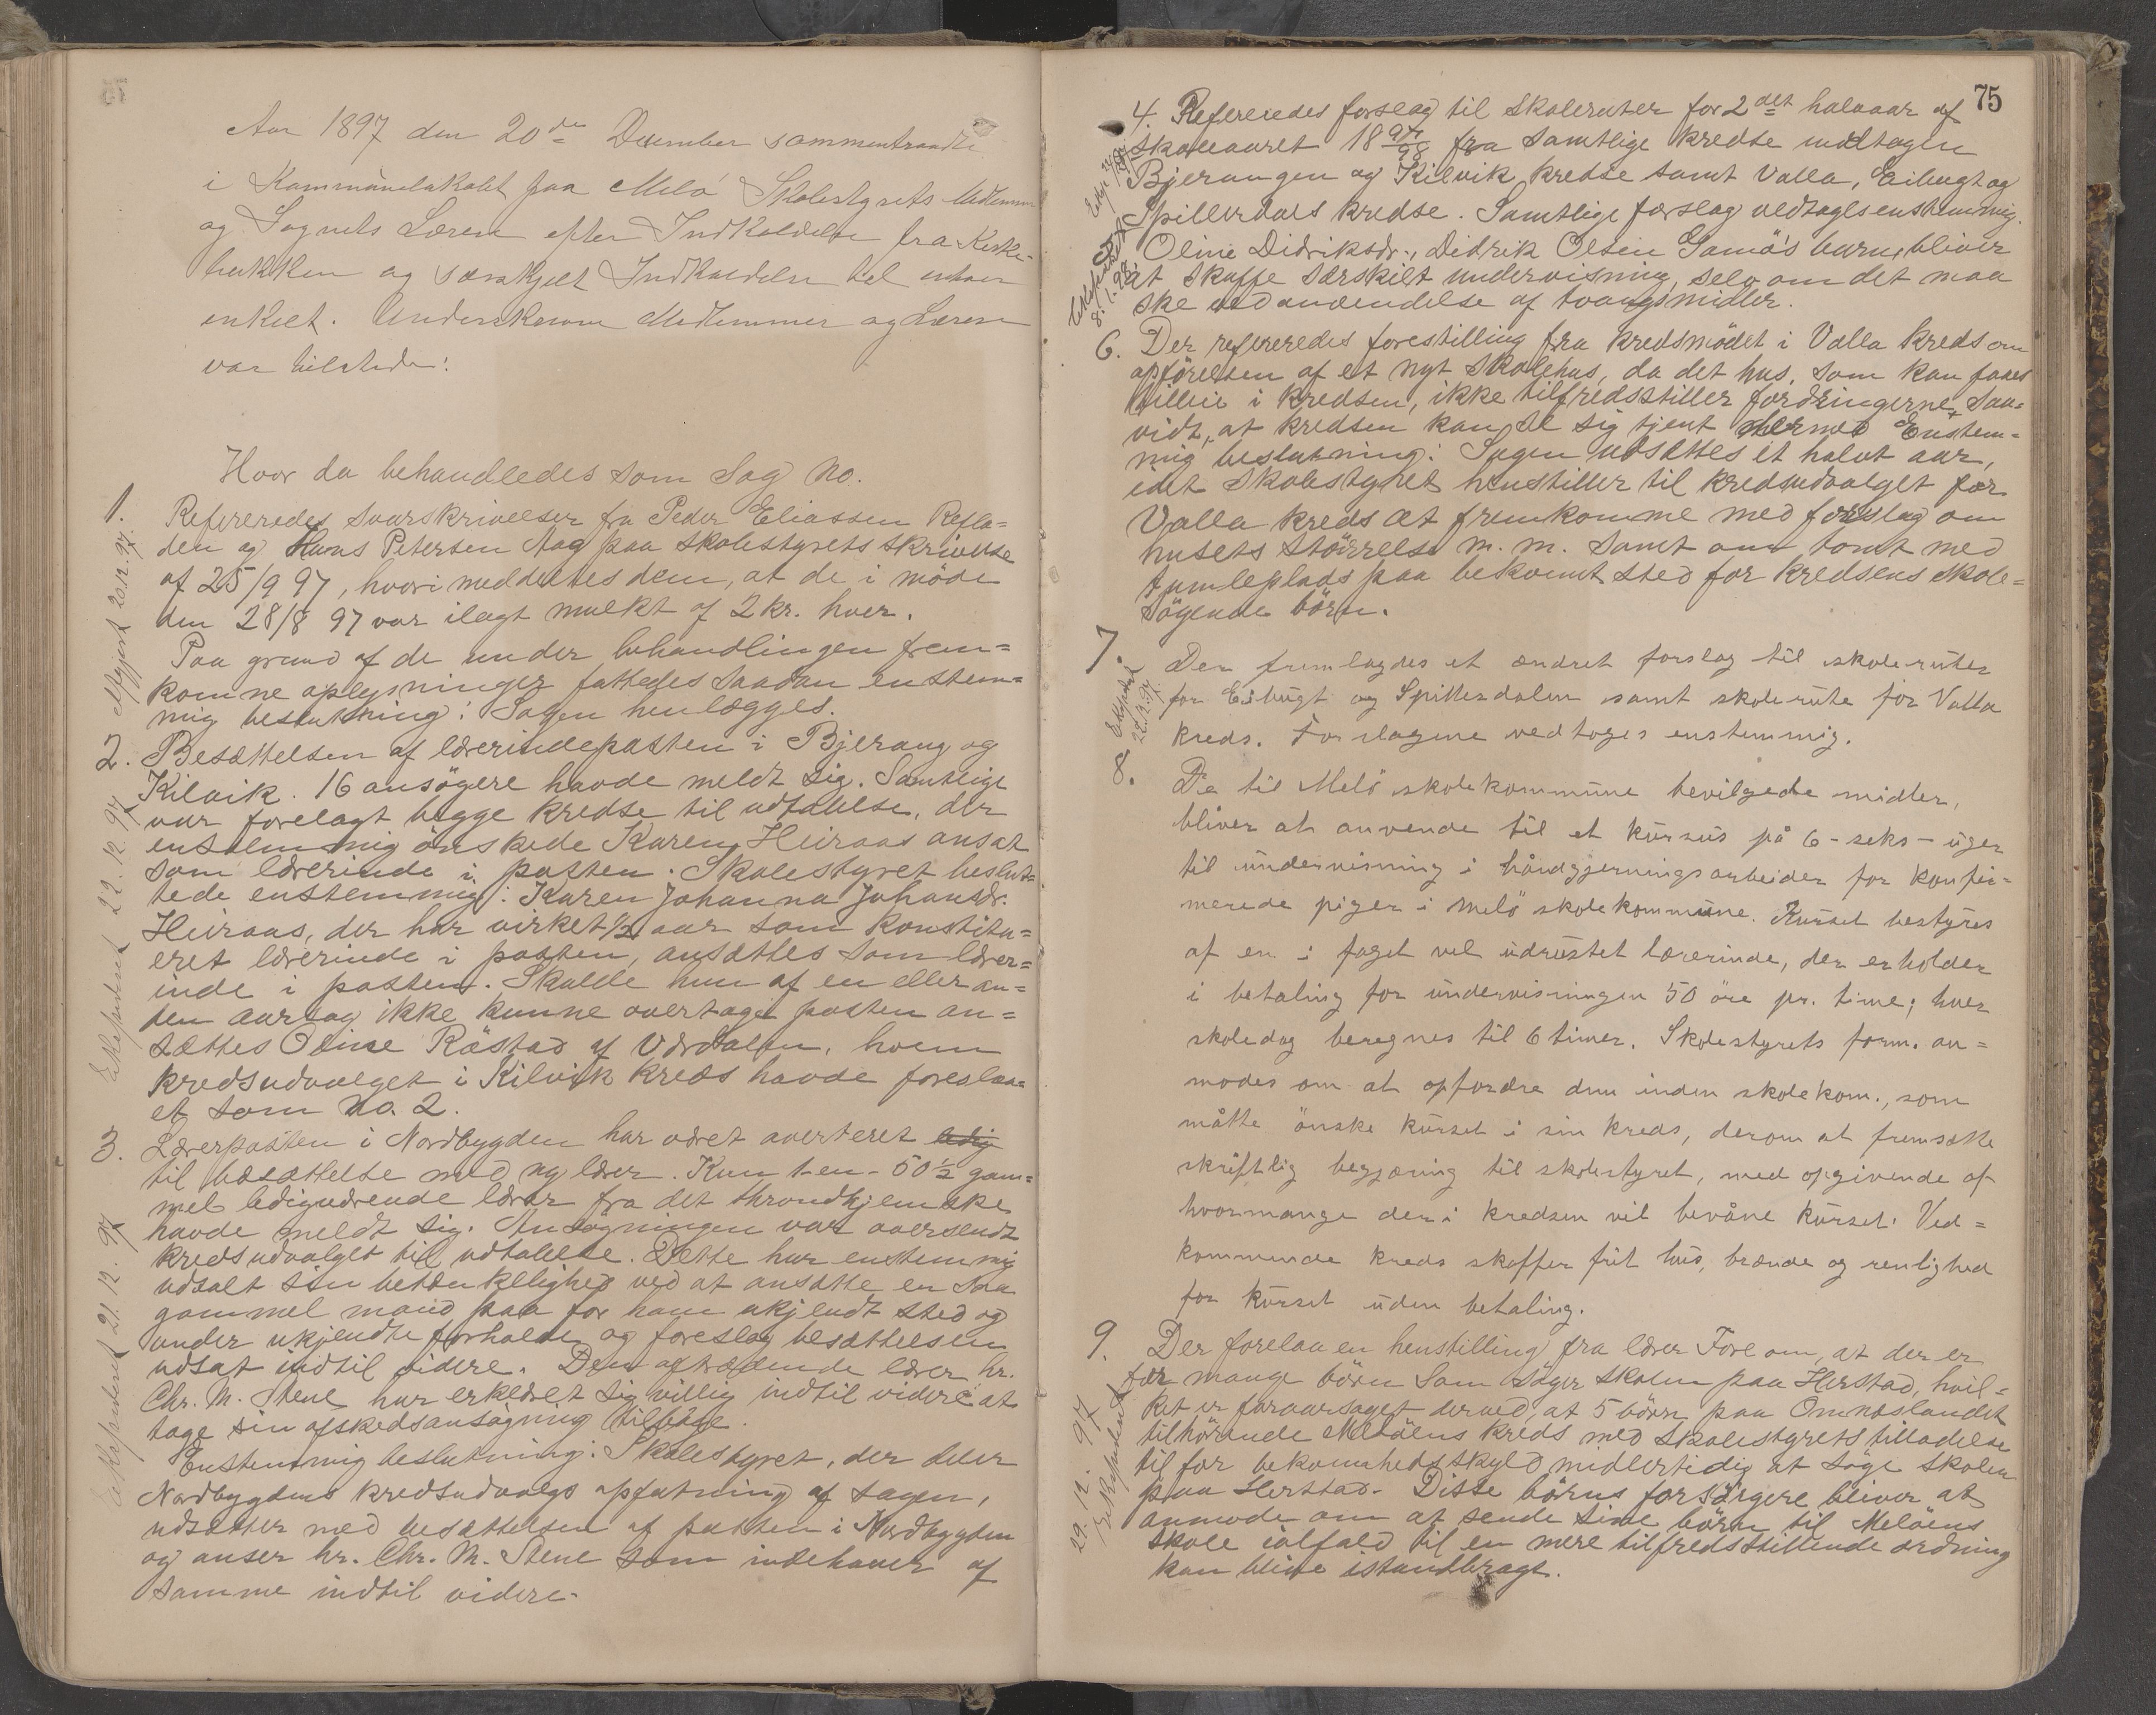 Aar 1897 den 20de December sammentraadte
i Kommunelokalet paa Melö Skolestyrets Medlemmer
og Sognets Lærere efter Indkaldelse fra Kirke-
bakken og særskjelt Indkaldelse til enhver
enkelt. Underskrevne Medlemmer og Lærere
var tilstede:
Hvor da behandledes som Sag No.
1. Refereredes svarskrivelser fra Peder Eliassen Refla=
den og Hans Petersen Aag paa skolestyrets skrivelse
af 25/9 97, hvori meddeltes dem, at de i möde
den 28/8 97 var ilagt mulkt af 2 kr. hver.
Paa grund af de under behandlingen frem=
komne oplysninger fattedes saadan enstem=
mig beslutning: Sagen henlægges.
Afgjort 20.12.97.
2. Besættelsen af lærerindeposten i Bjerang og
Kilvik. 16 ansögere havde meldt sig. Samtlige
var forelagt begge kredse til udtalelse, der
enstemmig önskede Karen Heiraas ansat
som lærerinde i posten. Skolestyret beslut=
tede enstemmig: Karen Johanna Johansdr.
Heiraas, der har virket 1/2 aar som konstitu=
eret lærerinde i posten, ansættes som lærer=
inde i posten. Skulde hun af en eller an=
den aarsag ikke kunne overtage posten an=
sættes Oline Råstad af Værdalen, hvem
kredsudvalget i Kilvik kreds havde foreslaa=
et som No. 2.
Ekspederet 29.12.97
3. Lærerposten i Nordbygden har været averteret ledig
til besættelse med ny lærer. Kun 1-en- 50 1/2 gam=
mel ledigværende lærer fra det throndhjemske
havde meldt sig. Ansögningen var oversendt
kredsudvalget til udtalelse. Dette har enstemmig
udtalt sin betænkelighed ved at ansætte en saa
gammel mand paa for ham ukjendt sted og
under ukjendte forholde og foreslog besættelsen
udsat indtil videre. Den aftrædende lærer hr.
Chr. M. Stene har erklæret sig villig indtil videre at
tage sin afskedsansögning tilbage.
Enstemmig beslutning: Skolestyret, der deler
Nordbygdens kredsudvalgs opfatning af sagen,
udsætter med besættelsen af posten i Nordbygden
og anser hr. Chr. M. Stene som indehaver af
samme indtil videre.
Ekspederet 21.12.97
75
4. Refereredes forslag til skoleruter for 2det halvaar af
skoleaaret 18 97/98 fra samtlige kredse undtagen
Bjerangen og Kilvik kredse samt Valla, Eibugt og
Spillerdals kredse. Samtlige forslag vedtages enstemmig.
5. Oline Didriksdr., Didrik Olsen Gamö's barn, bliver
at skaffe særskilt undervisning, selv om det maa
ske ved anvendelse af tvangsmidler.
Ekspederet
8.1.98.
6. Der refereredes forestilling fra kredsmödet i Valla kreds om
opförelsen af et nyt skolehus, da det hus, som kan faaes
tilleie i kredsen, ikke tilfredsstiller fordringerne, saa=
vidt, at kredsen kan se sig tjent dermed Enstem=
mig beslutning: Sagen udsættes et halvt aar,
idet skolestyret henstiller til kredsudvalget for
Valla kreds at fremkomme med forslag om
husets störrelse m. m. samt om tomt med
tumleplads paa bekvemt sted for kredsens skole=
sögende börn.
7. Der fremlagdes et ændret forslag til skoleruter
for Eibugt og Spillerdalen samt skolerute for Valla
kreds. Forslagene vedtoges enstemmig.
Ekspederet
22.12.97.
8. De til Melö skolekommune bevilgede midler,
bliver at anvende til et kursus på 6 - seks - uger
til undervisning i håndgjerningsarbeider for konfir=
merede piger i Melö skolekommune. Kurset bestyres
af en i faget vel udrustet lærerinde, der erholder
i betaling for undervisningen 50 öre pr. time; hver
skoledag beregnes til 6 timer. Skolestyrets form. an=
modes om at opfordre dem inden skolekom., som
måtte önske kurset i sin kreds, derom at fremsætte
skriftlig begjæring til skolestyret, med opgivende af
hvormange der i kredsen vil bevåne kurset. Ved=
kommende kreds skaffer frit hus, brænde og renlighed
for kurset uden betaling.
9. Der forelaa en henstilling fra lærer Fore om, at der er
for mange börn som söger skolen paa Herstad, hvil=
ket er foraarsaget derved, at 5 börn paa Omnæslandet
tilhörende Melöens kreds med skolestyrets tilladelse
til for bekvemheds skyld midlertidig at söge skolen
paa Herstad. Disse börns forsörgere bliver at
anmode om at sende sine börn til Melöens
skole ialfald til en mere tilfredsstillende ordning
kan blive istandbragt.
29.12.97
Ekspederet